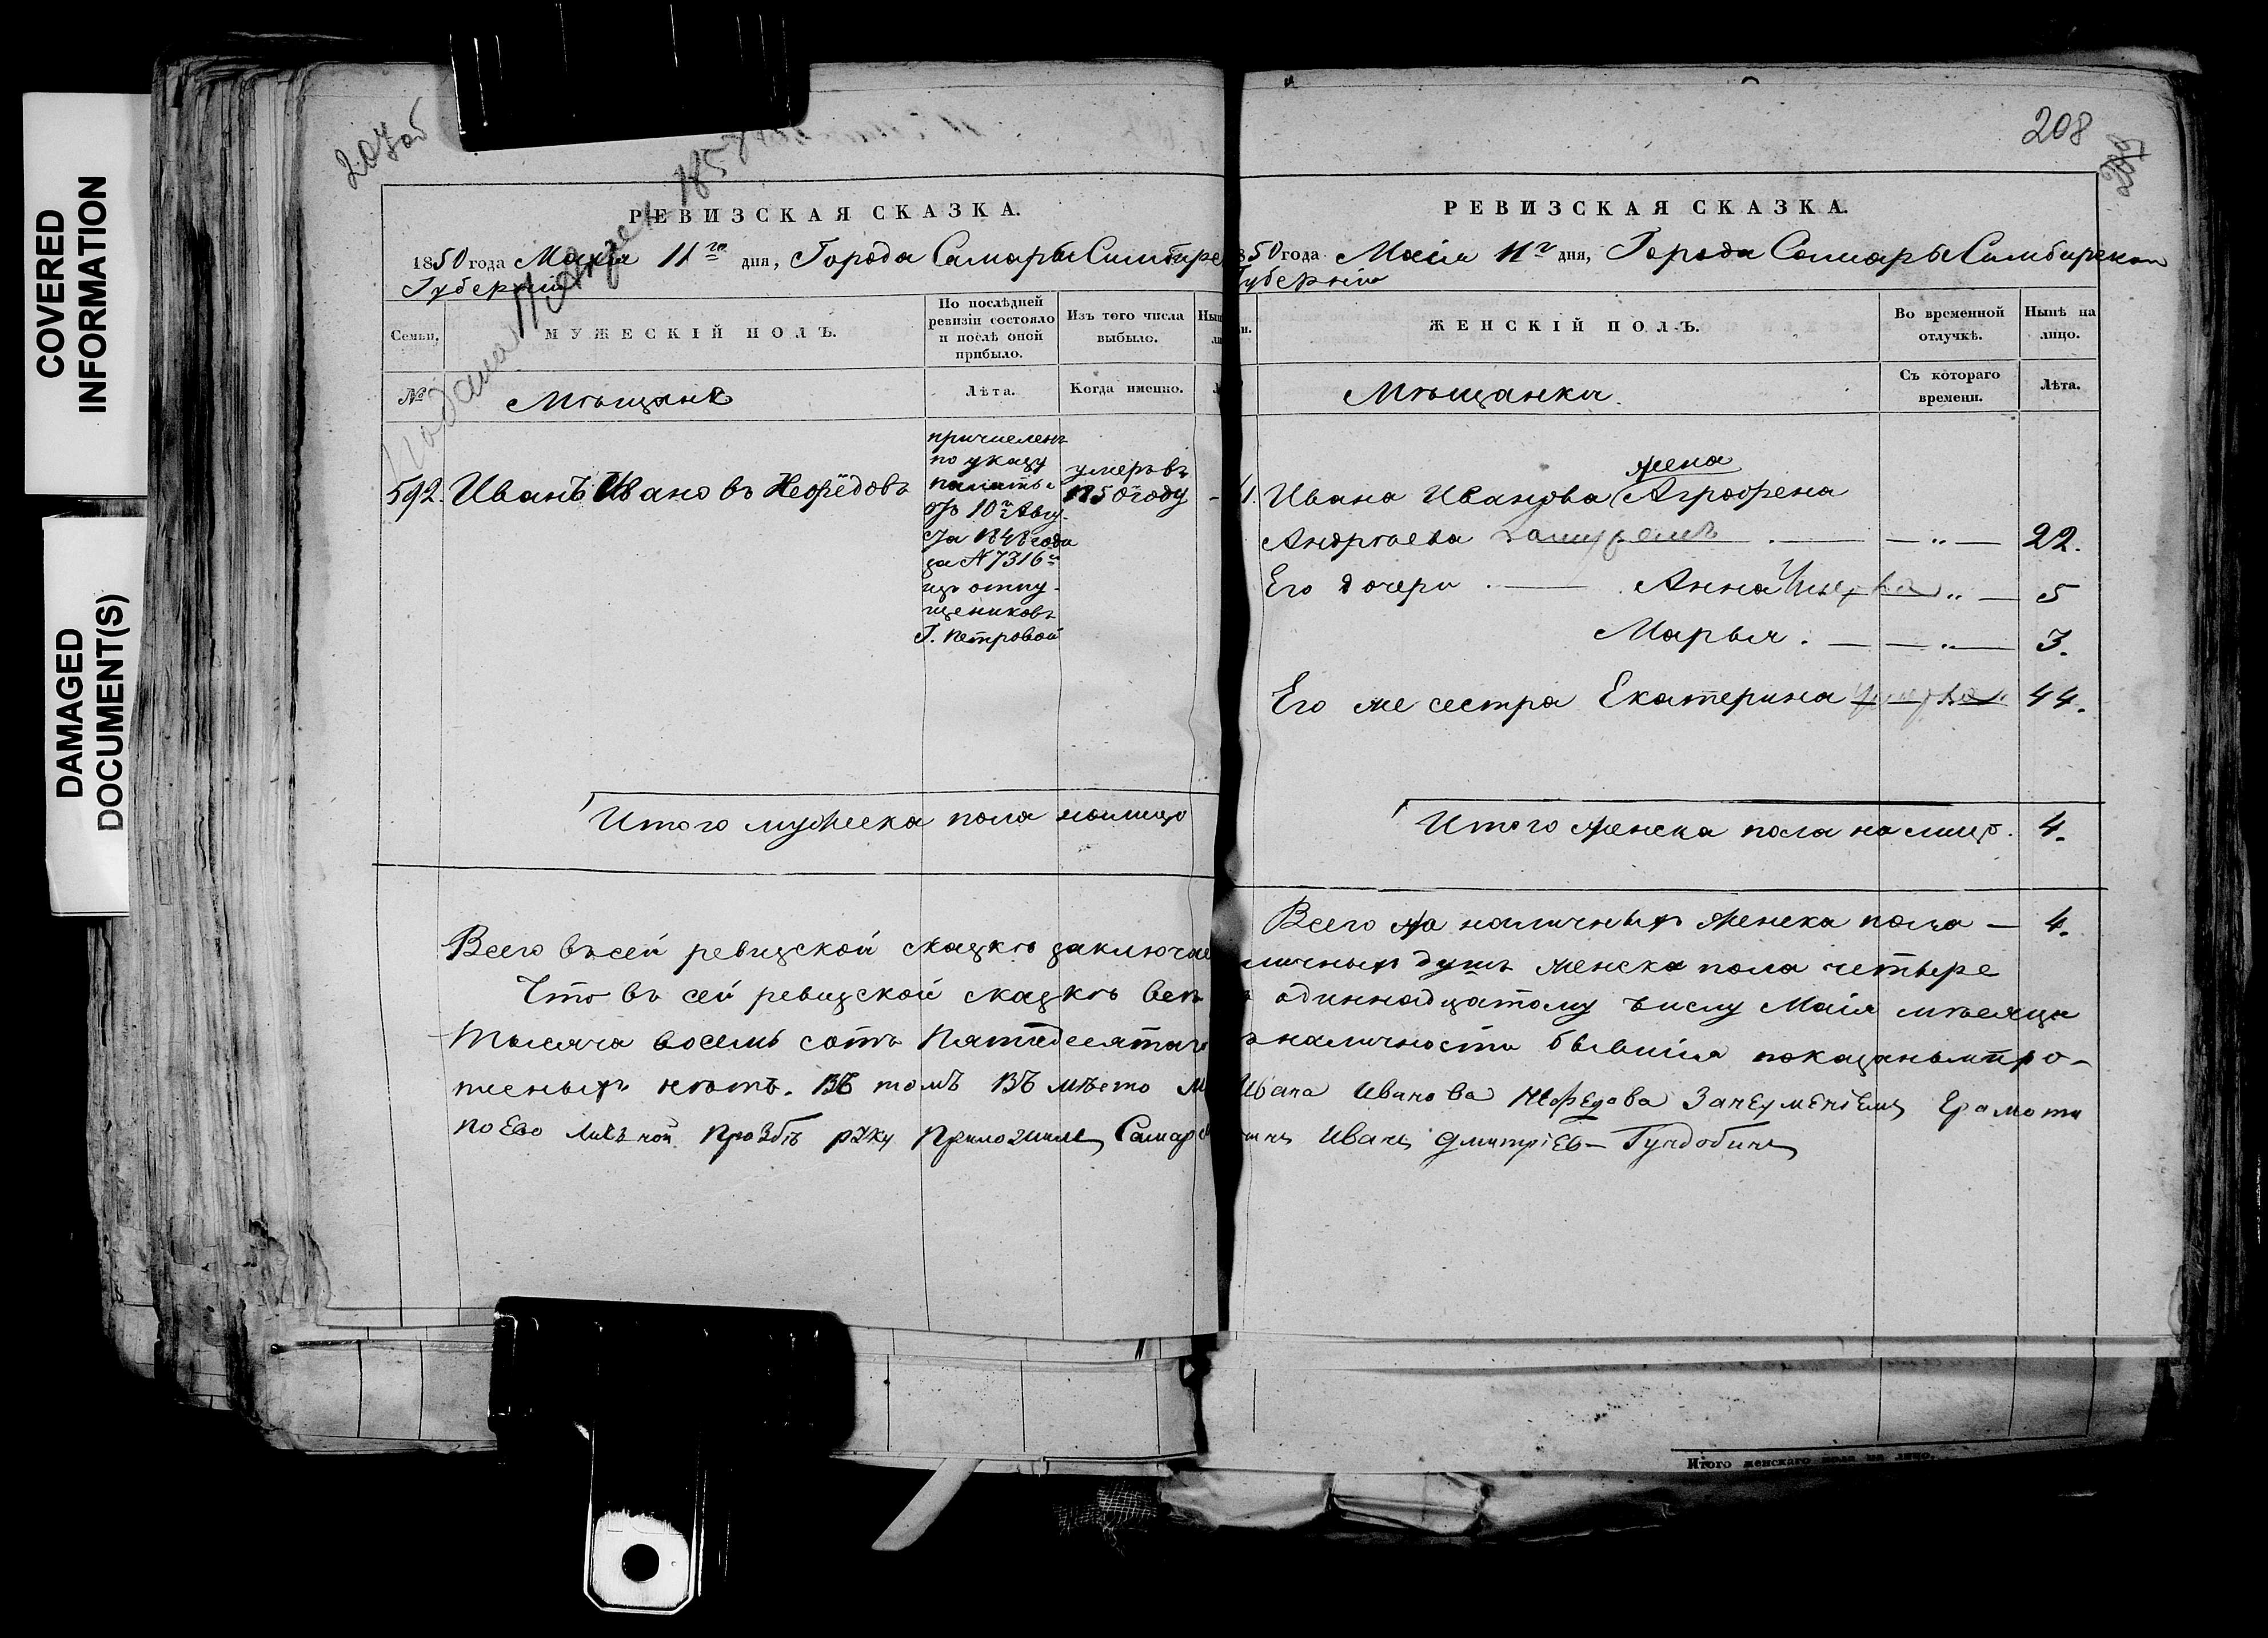 COVERED
INFORMATION
DAMAGED
DOCUMENT(S)
207об
185
РЕВИЗСКАЯ СКАЗКА.
1850 года Маія 11го дня, Города Самары Симбирс
Губерніи
Семьи,
МУЖЕСКІЙ ПОЛЪ.
По послѣдней
ревизіи состояло
и послѣ оной
прибыло.
Изъ того числа
выбыло.
№
Мѣщане
Лѣта.
Когда именно.
592. Иванъ Ивановъ Нефёдовъ
причислень
по указу
палаты
отъ 10го Авгу-
ста 1848 года
за №7316м
изъ отпу-
щениковъ
Г. Петровой
умеръ въ
1850 году
Итого мужеска пола налицо
Всего въ сей ревизской сказкѣ заключае
Что въ сей ревизской сказкѣ всѣ
тысяча восемь сотъ Пятидесятаго
теныхъ нѣтъ. въ томъ въ мѣсто м
по Ево личной прозбѣ руку приложилъ Самарс
208
РЕВИЗСКАЯ СКАЗКА.
850 года Маія 11го дня, Города Самары Симбирской
Губерніи
ЖЕНСКІЙ ПОЛЪ.
Во временной
отлучкѣ.
Нынѣ на
лицо.
Мѣщанки.
Съ котораго
времени.
Лѣта.
Ивана Иванова жена Аграфена
Андрѣева замужемъ — „ — 22.
Его дочери — Анна умерла „ — 5
Марья. — — „ — 3.
Его же сестра Екатерина умерла „ 44.
Итого женска пола на лицо. 4.
Всего на наличныхъ женска пола — 4.
личныхъ душъ женска пола четыре
одиннадцатому числу Маія мѣсяца
наличности бывшія показаны и про-
Ивана Иванова Нефедова Занеуменіемъ Грамоты
Иванъ Дмитріевъ Гундобинъ
Итого женскаго пола на лицо.